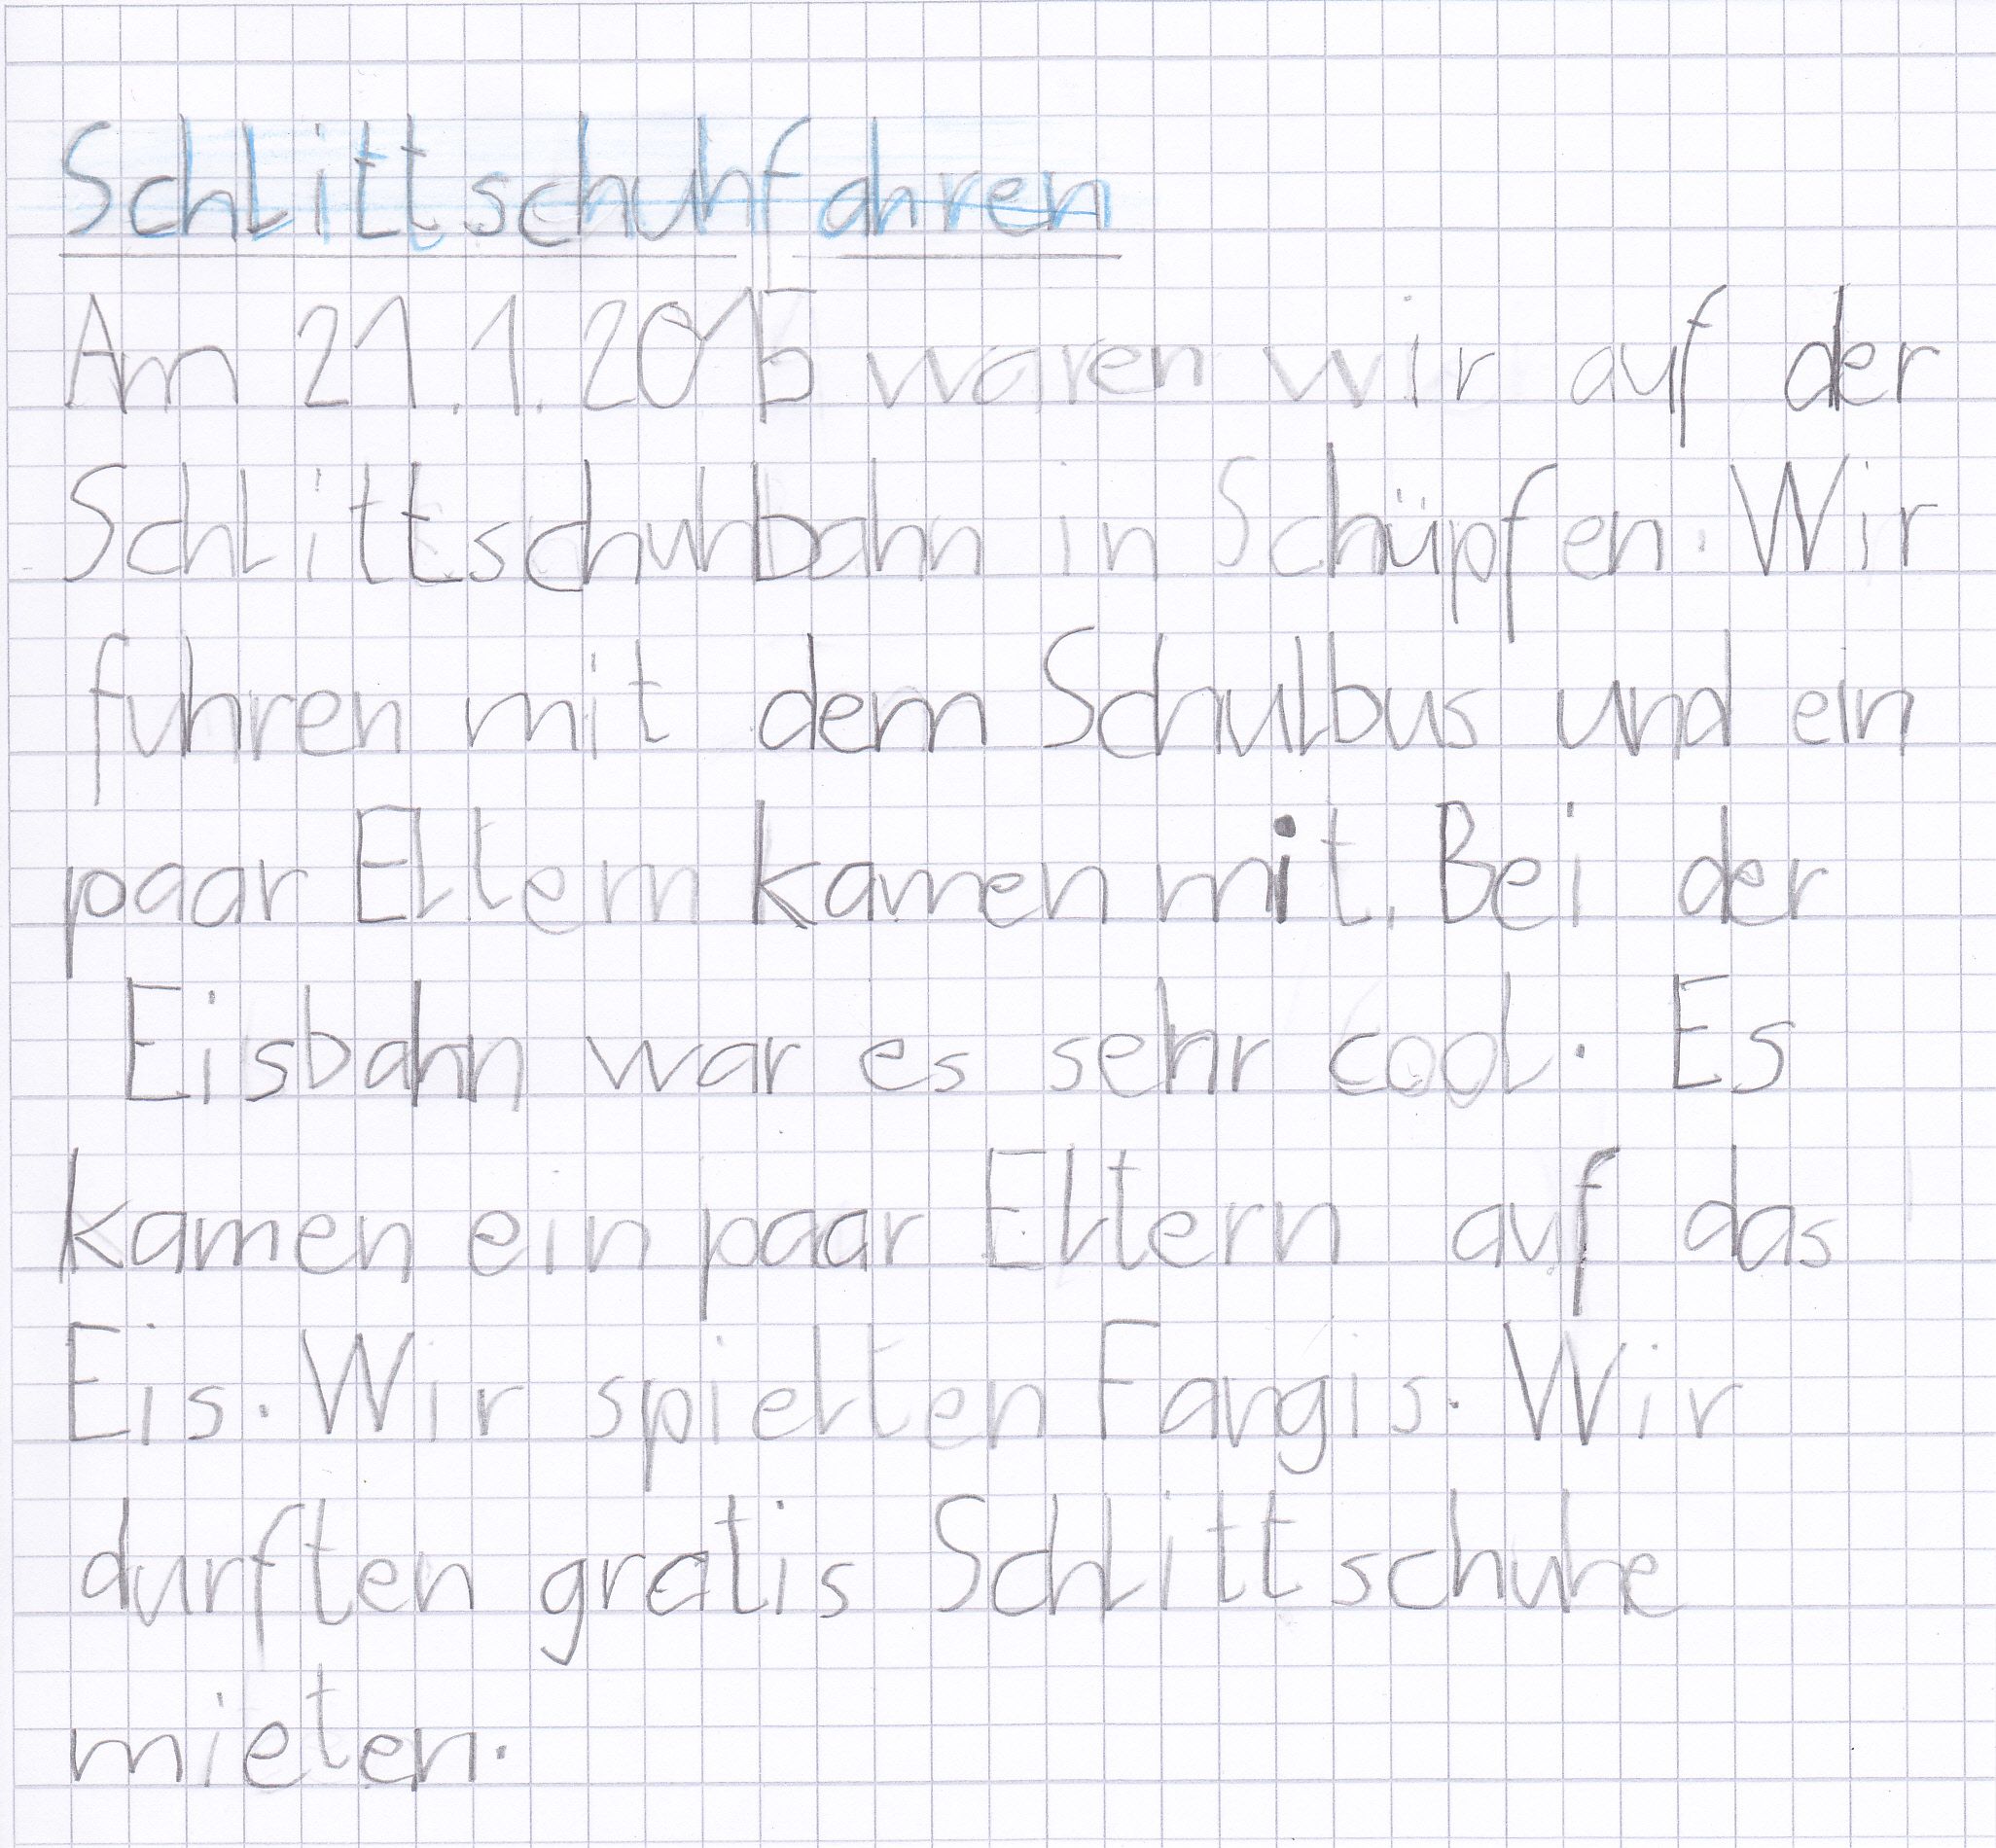 Schlittschuhfahren
Am 21.1.2015 waren wir auf der
Schlittschuhbahn in Schüpfen. Wir
fuhren mit dem Schulbus und ein
paar Eltern kamen mit. Bei der
Eisbahn war es sehr cool. Es
kamen ein paar Eltern auf das
Eis. Wir spielten Fangis. Wir
durften gratis Schlittschuhe
mieten.